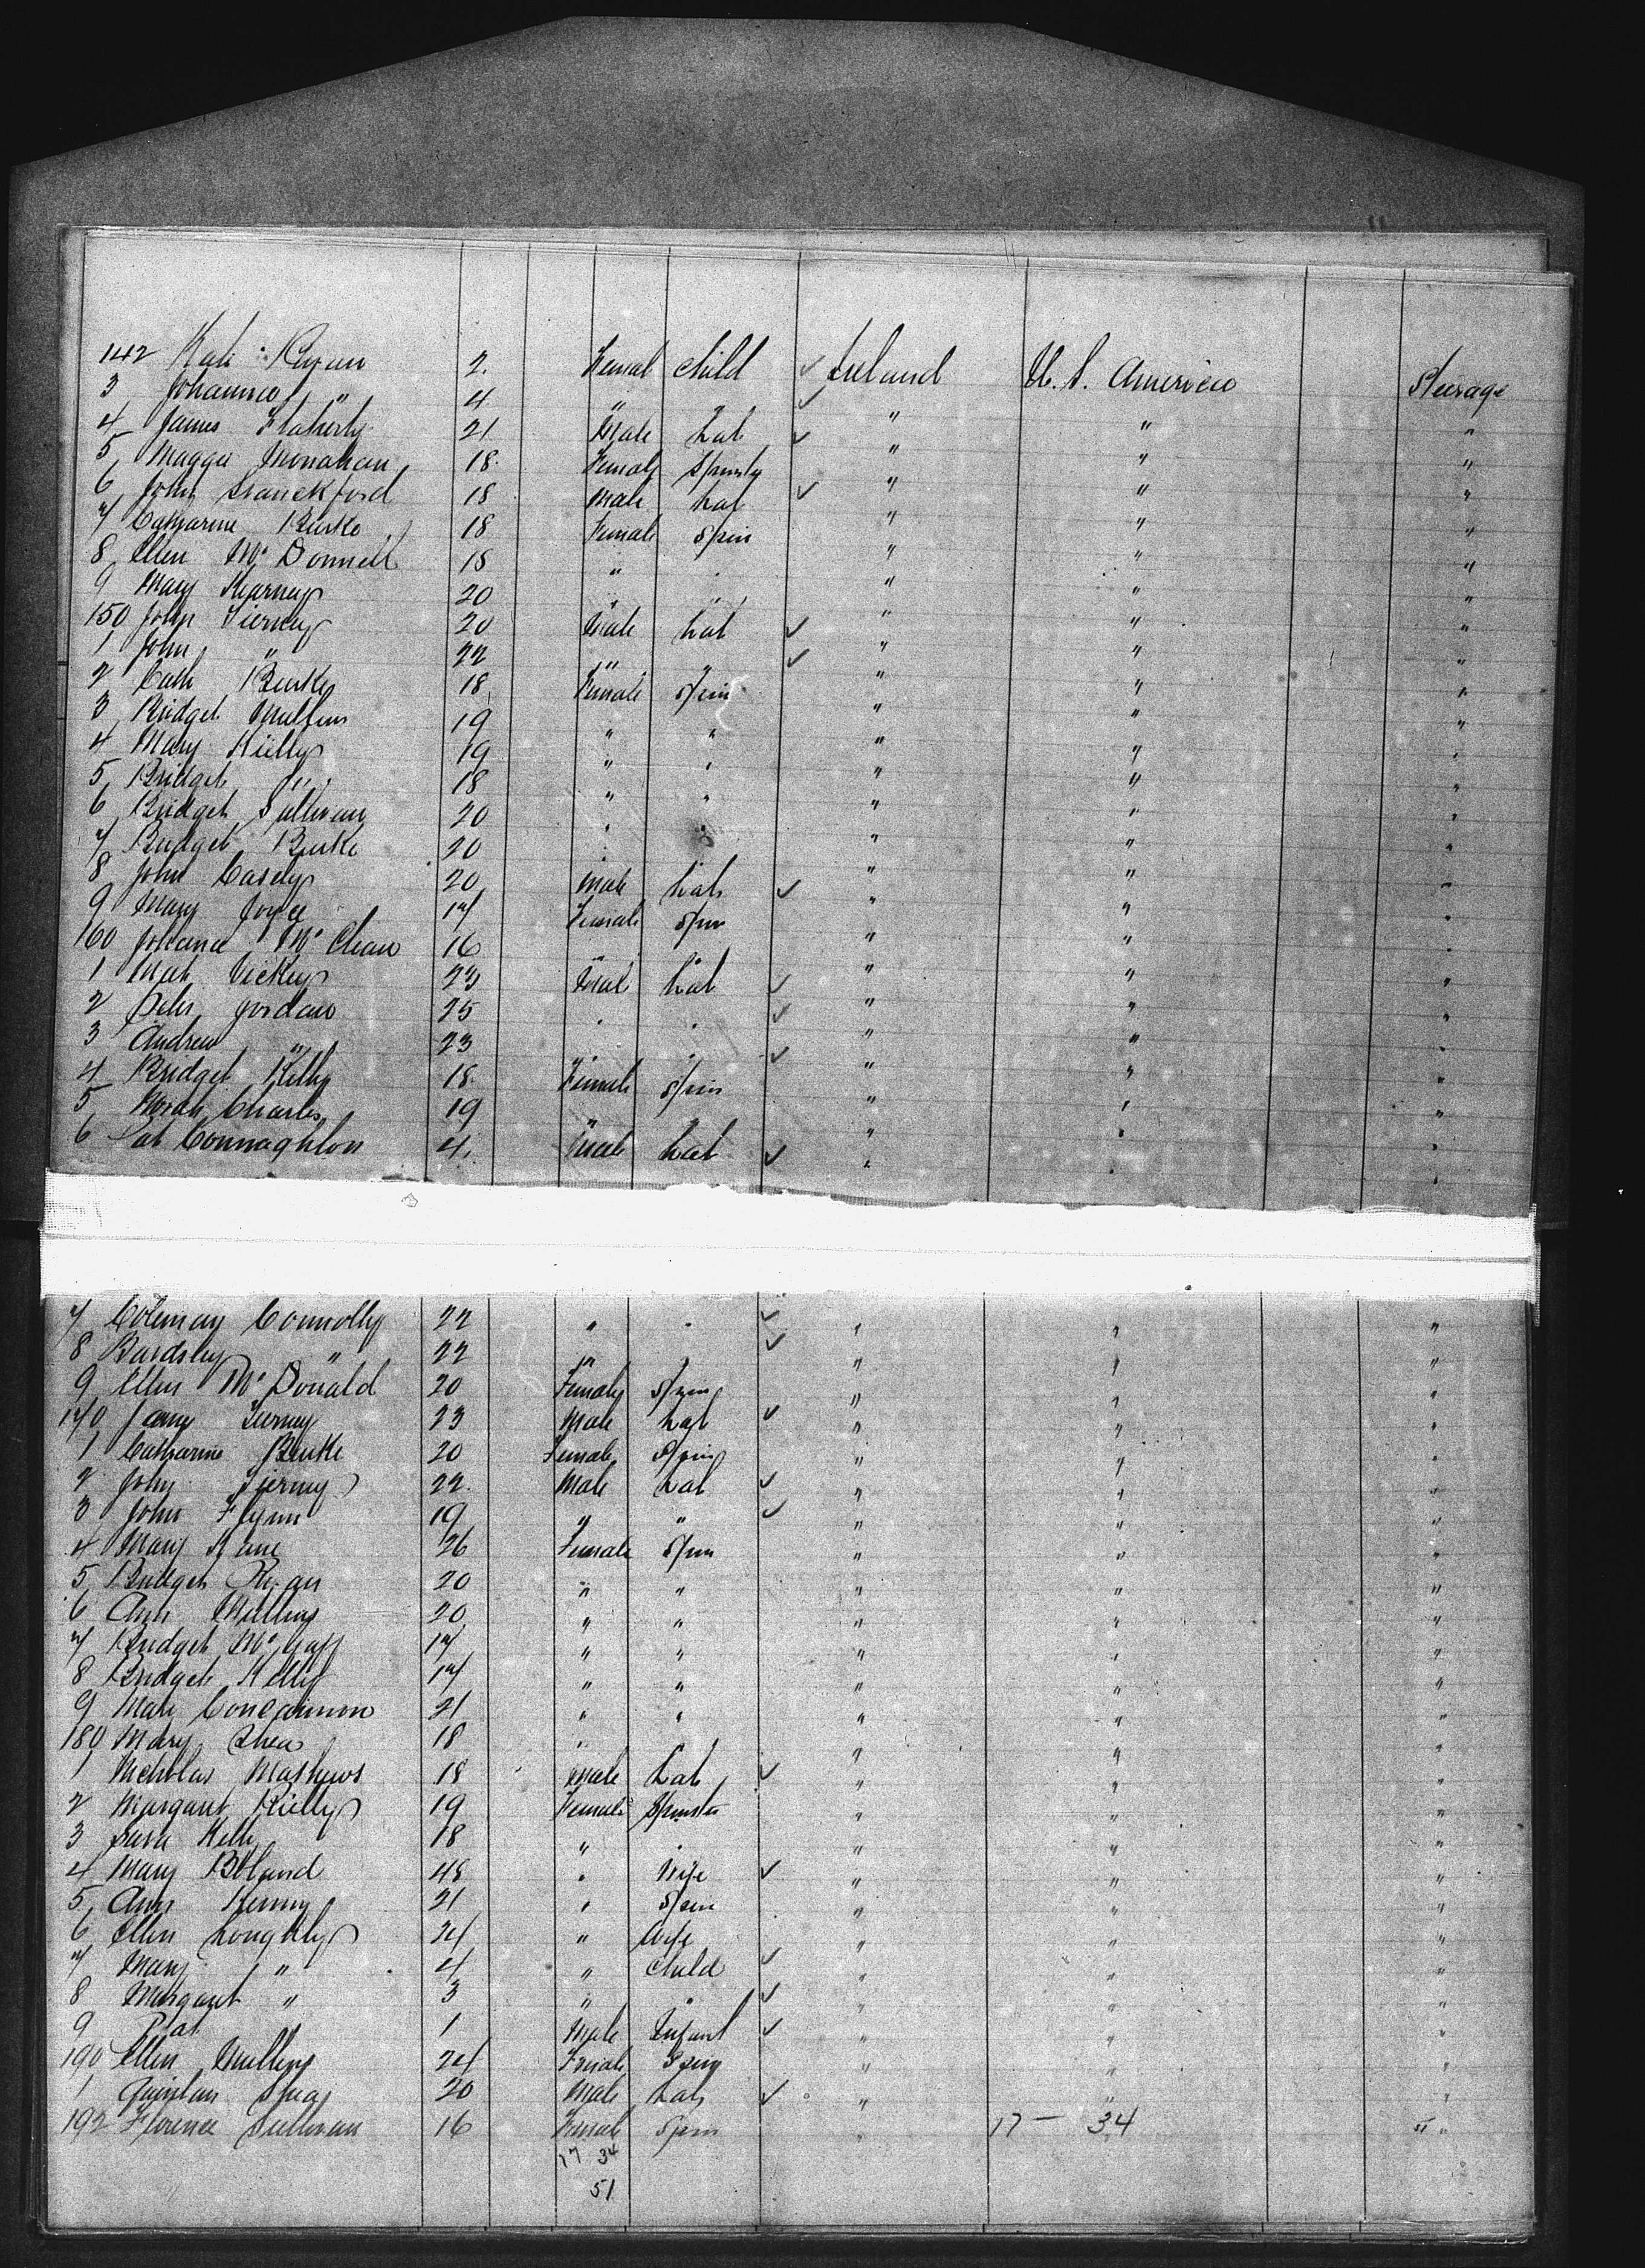 142 Kate Ryan 2. Femal Child ✓ Ireland U. S. America Steerage
3 Johanna " 4 " " ✓ " " "
4 James Flaherty 21 Male Lab ✓ " " "
5 Maggie Monahan 18 Female Spinster " " "
6 John 18 Male Lab ✓ " " "
7 Catharine Burke 18 Female Spin " " "
8 Ellen McDonnell 18 " " " " "
9 Mary Kearney 20 " " " " "
150 John Tierney 20 Male Lab ✓ " " "
1 John " 22 " " ✓ " " "
2 Cath Burke 18 Female Spin " " "
3 Bridget Mullins 19 " " " " "
4 Mary Kielly 19 " " " " "
5 Bridget " 18 " " " " "
6 Bridget Sullivan 20 " " " " "
7 Bridget Burke 20 " " " " "
8 John Casely 20 Male Lab ✓ " " "
9 Mary Joyce 17 Female Spin " " "
160 Johana McClean 16 " " " " "
1 Mich Hickey 23 Male Lab ✓ " " "
2 Peter Jordan 25 " " ✓ " " "
3 Andrew " 23 " " ✓ " " "
4 Bridget Kelly 18 Female Spin " " "
5 Norah Charles 19 " " " " "
6 Pat Connaghton 4. Male Lab ✓ " " "
7 Coleman Connolly 22 " " ✓ " " "
8 Bardsley " 22 " " ✓ " " "
9 Ellen McDonald 20 Female Spin " " "
170 Tierney 23 Male Lab ✓ " " "
1 Catharine Burke 20 Female Spin " " "
2 John Tierney 22. Male Lab ✓ " " "
3 John Flynn 19 " " ✓ " " "
4 Mary Kane 26 Female Spin " " "
5 Bridget Ryan 20 " " " " "
6 Ann Mullins 20 " " " " "
7 Bridget McGaff 17 " " " " "
8 Bridget Kelly 17 " " " " "
9 Mary Concannon 21 " " " " "
180 Mary Shea 18 " " " " "
1 Nicholas Mathews 18 Male Lab ✓ " " "
2 Margaret Kielly 19 Female Spinster " " "
3 Sara Kelly 18 " " " " "
4 Mary Boland 48 " Wife ✓ " " "
5 Ann Kenny 21 " Spin " " "
6 Ellen Loughlly 24 " Wife " " "
7 Mary " 4 " Child ✓ " " "
8 Margaret " 3 " " ✓ " " "
9 Pat 1 Male Infant ✓ " " "
190 Ellen Mullins 24 Female Spin " " "
1 Quinlan Shea 20 Male Lab ✓ " " "
192 Florence Sullivan 16 Femal Spin " 17 — 34 "
17 34
51